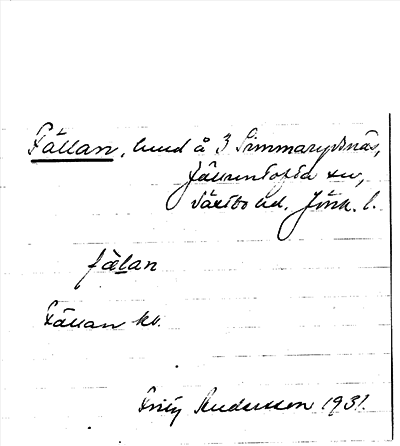 Fällan, lund å 3 Simmarydsnäs,
Jälluntofta sn,
Västbo hd. Jönk. l.
fälan
Fällan kv.
Fritz Andersson 1931